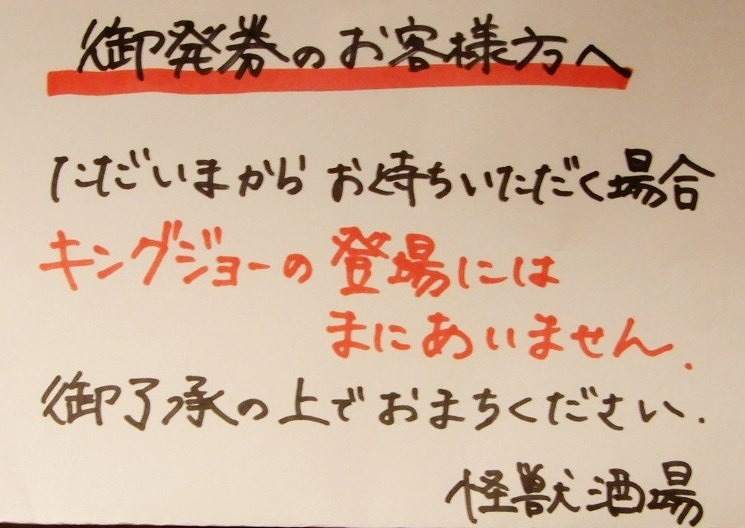 御発券のお客様方へ
ただいまから お待ちいただく場合
キングジョーの登場には
まにあいません.
御了承の上でおまちください.
怪獣酒場